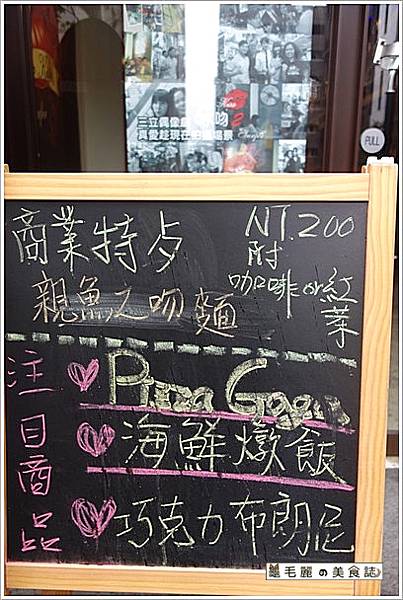 Kiss
三立偶像劇 吻2
真愛趁現在拍攝場景
PULL
商業特歺
NT.200
附
咖啡or紅茶
親魚之吻麵
注目商品
Pizza
海鮮燉飯
巧克力布朗尼
毛麗の美食誌